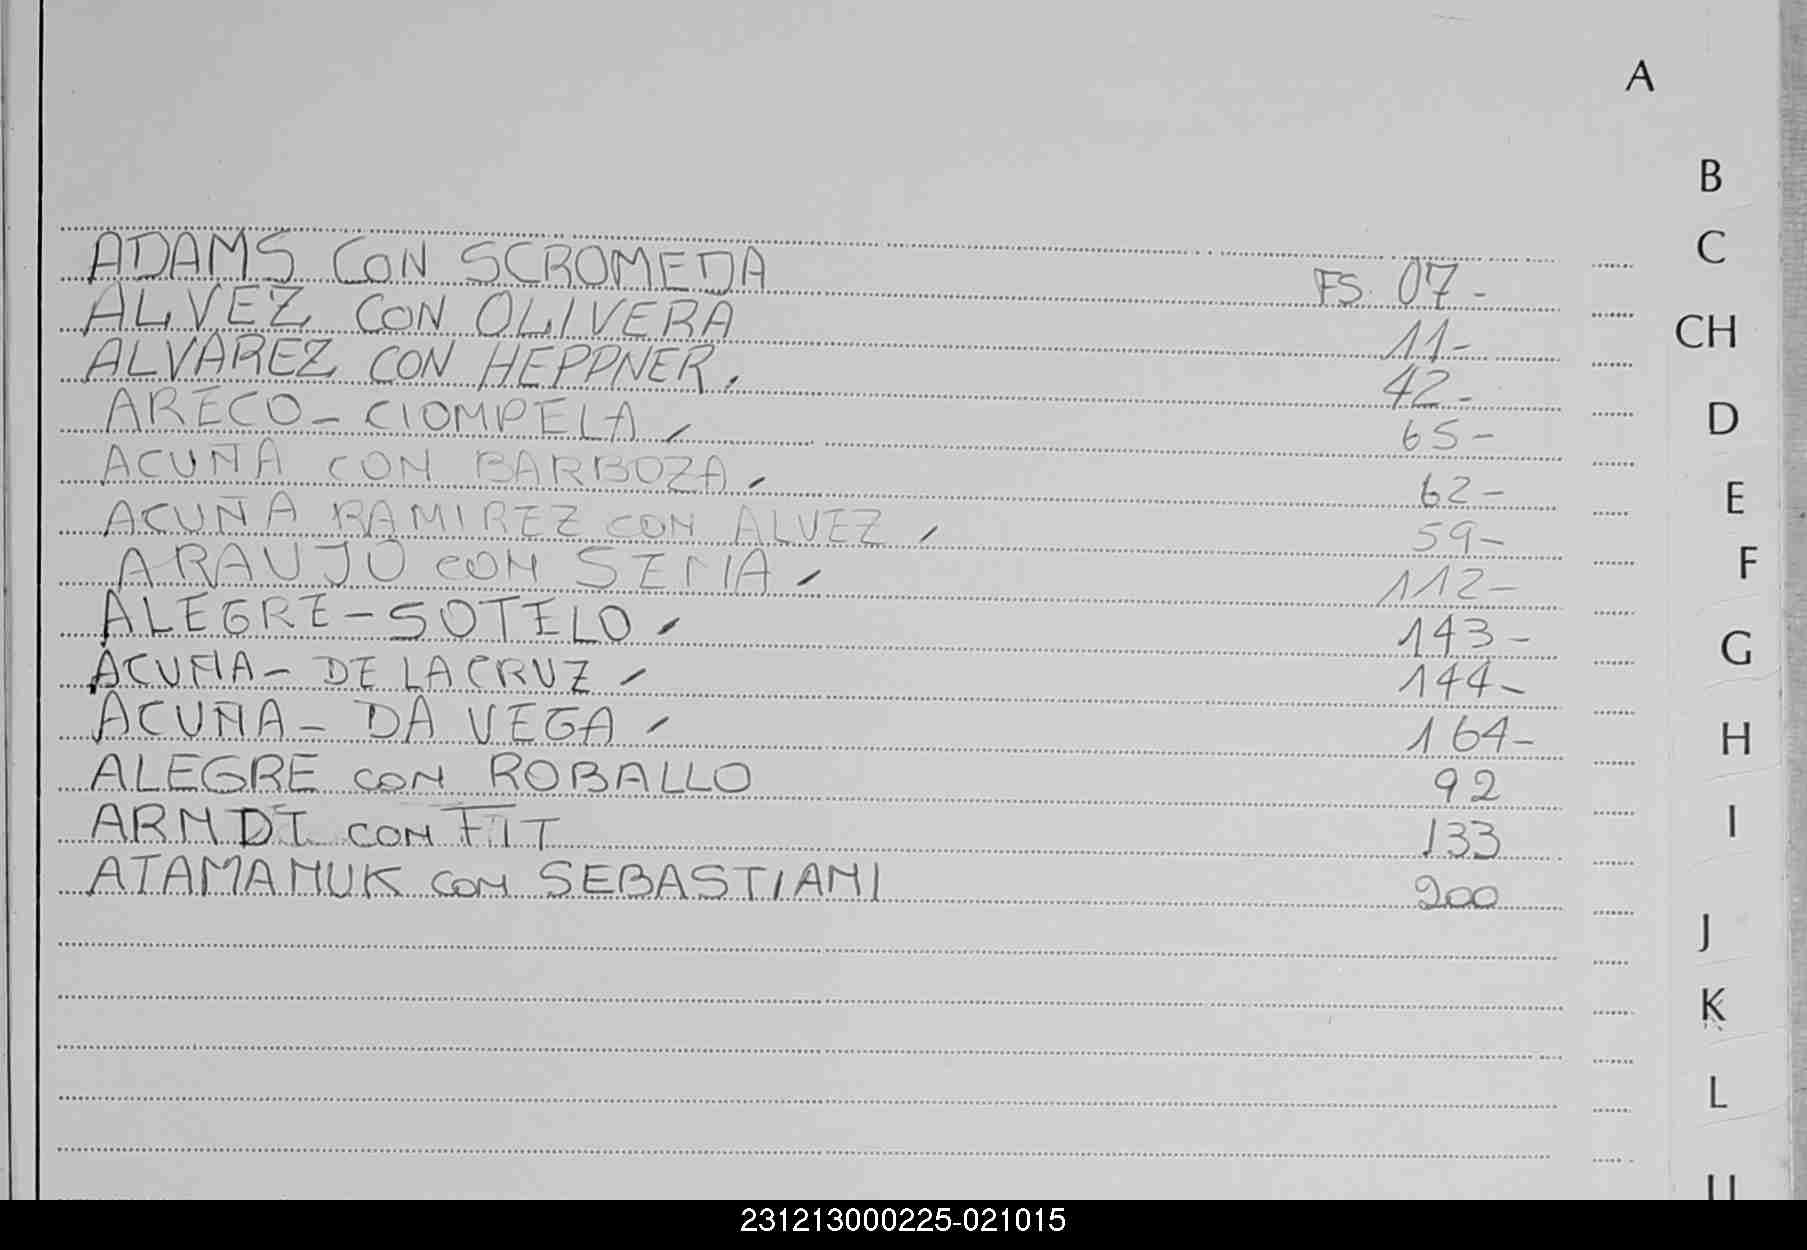 A
B
C
CH
D
E
F
G
H
I
J
K
L
ADAMS CON SCROMEDA FS 07-
ALVEZ CON OLIVERA 11-
ALVAREZ CON HEPPNER. 42-
ARECO - CIOMPELA 65-
ACUÑA CON BARBOZA 62-
ACUÑA RAMIREZ CON ALVEZ 59-
ARAUJO CON 112-
ALEGRE - SOTELO 143-
ACUÑA - DE LA CRUZ 144-
ACUÑA - DA VEGA 164-
ALEGRE CON ROBALLO 92
ARNDT CON FIT 133
ATAMANUK CON SEBASTIANI 200
231213000225-021015